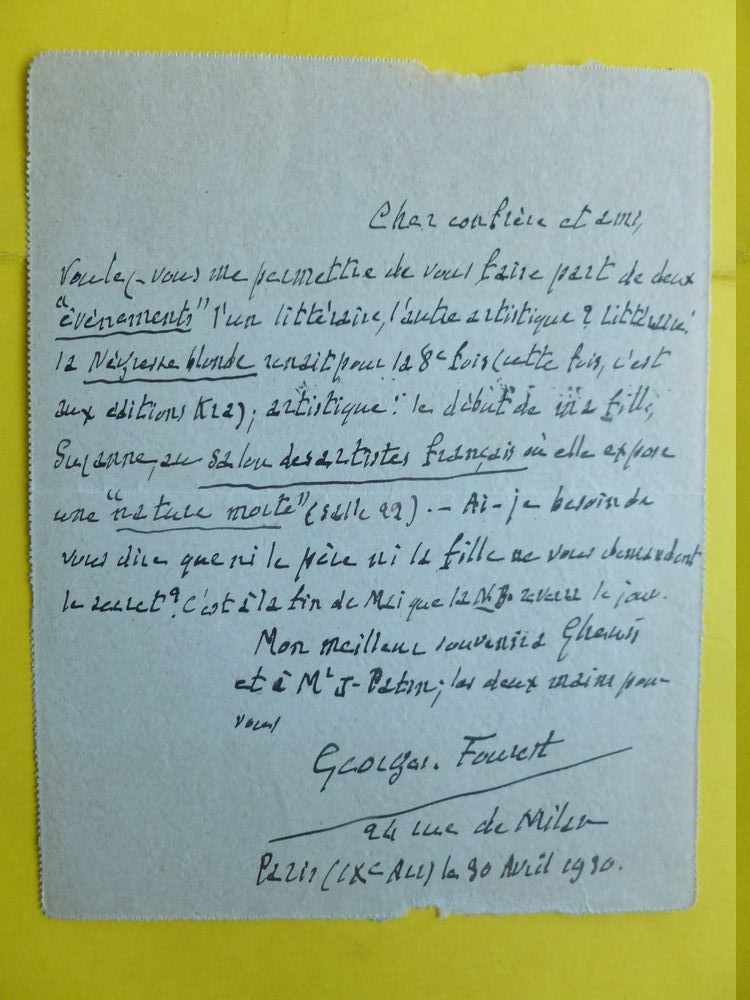 Cher confrère et ami,
Voulez-vous me permettre de vous faire part de deux
"évènements" l'un littéraire, l'autre artistique ? Littéraire:
la Négresse blonde renait pour la 8e fois (cette fois, c'est
aux editions Kra); artistique: le début de ma fille,
Suzanne, au Salon des artistes français où elle expose
une "nature morte" (salle 22). - Ai-je besoin de
vous dire que ni le père ni la fille ne vous demandent
le secret? C'est à la fin de Mai que la N.B. reverra le jour.
Mon meilleur souvenir à Gheusi
et à Mr J-Patin; les deux mains pour
vous
Georges. Fourest
24 rue de Milan
Paris (IXe Arr) le 30 Avril 1930.